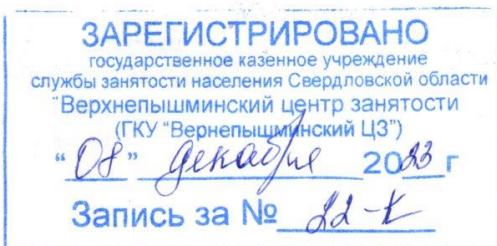 ЗАРЕГИСТРИРОВАНО
государственное казенное учреждение
службы занятости населения Свердловской области
"Верхнепышминский центр занятости
(ГКУ "Вернепышминский ЦЗ")
"08" декабря 2023 г
Запись за № 22-К